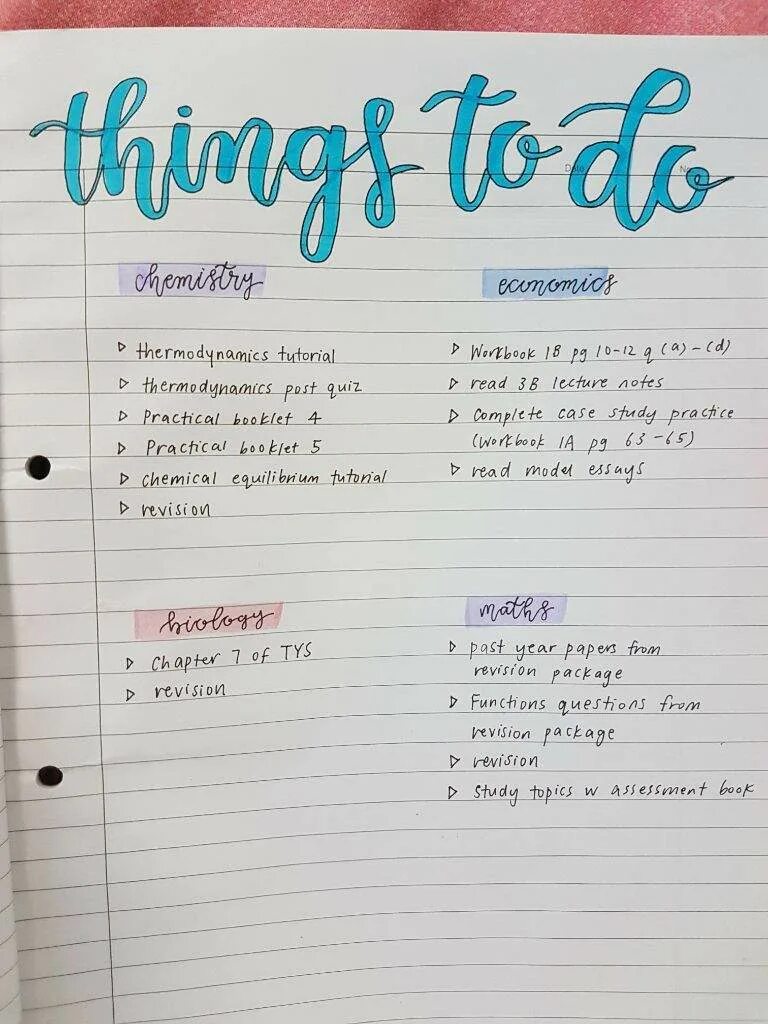 things to do
Date
No
chemistry
▷ thermodynamics tutorial
▷ thermodynamics post quiz
▷ Practical booklet 4
▷ Practical booklet 5
▷ chemical equilibrium tutorial
▷ revision
economics
▷ Workbook 1B pg 10-12 q (a)-(d)
▷ read 3B lecture notes
▷ Complete case study practice
(Workbook 1A pg 63-65)
▷ read model essays
biology
▷ Chapter 7 of TYS
▷ revision
maths
▷ past year papers from
revision package
▷ Functions questions from
revision package
▷ revision
▷ Study topics w assessment book